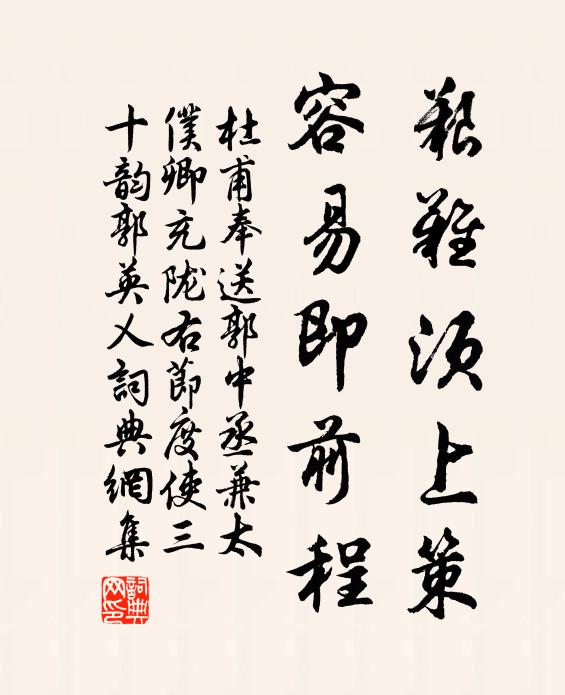 艱難須上策
容易即前程
杜甫奉送郭中丞兼太
僕卿充陇右節度使三
十韵郭英乂詞典網集
詞典网印